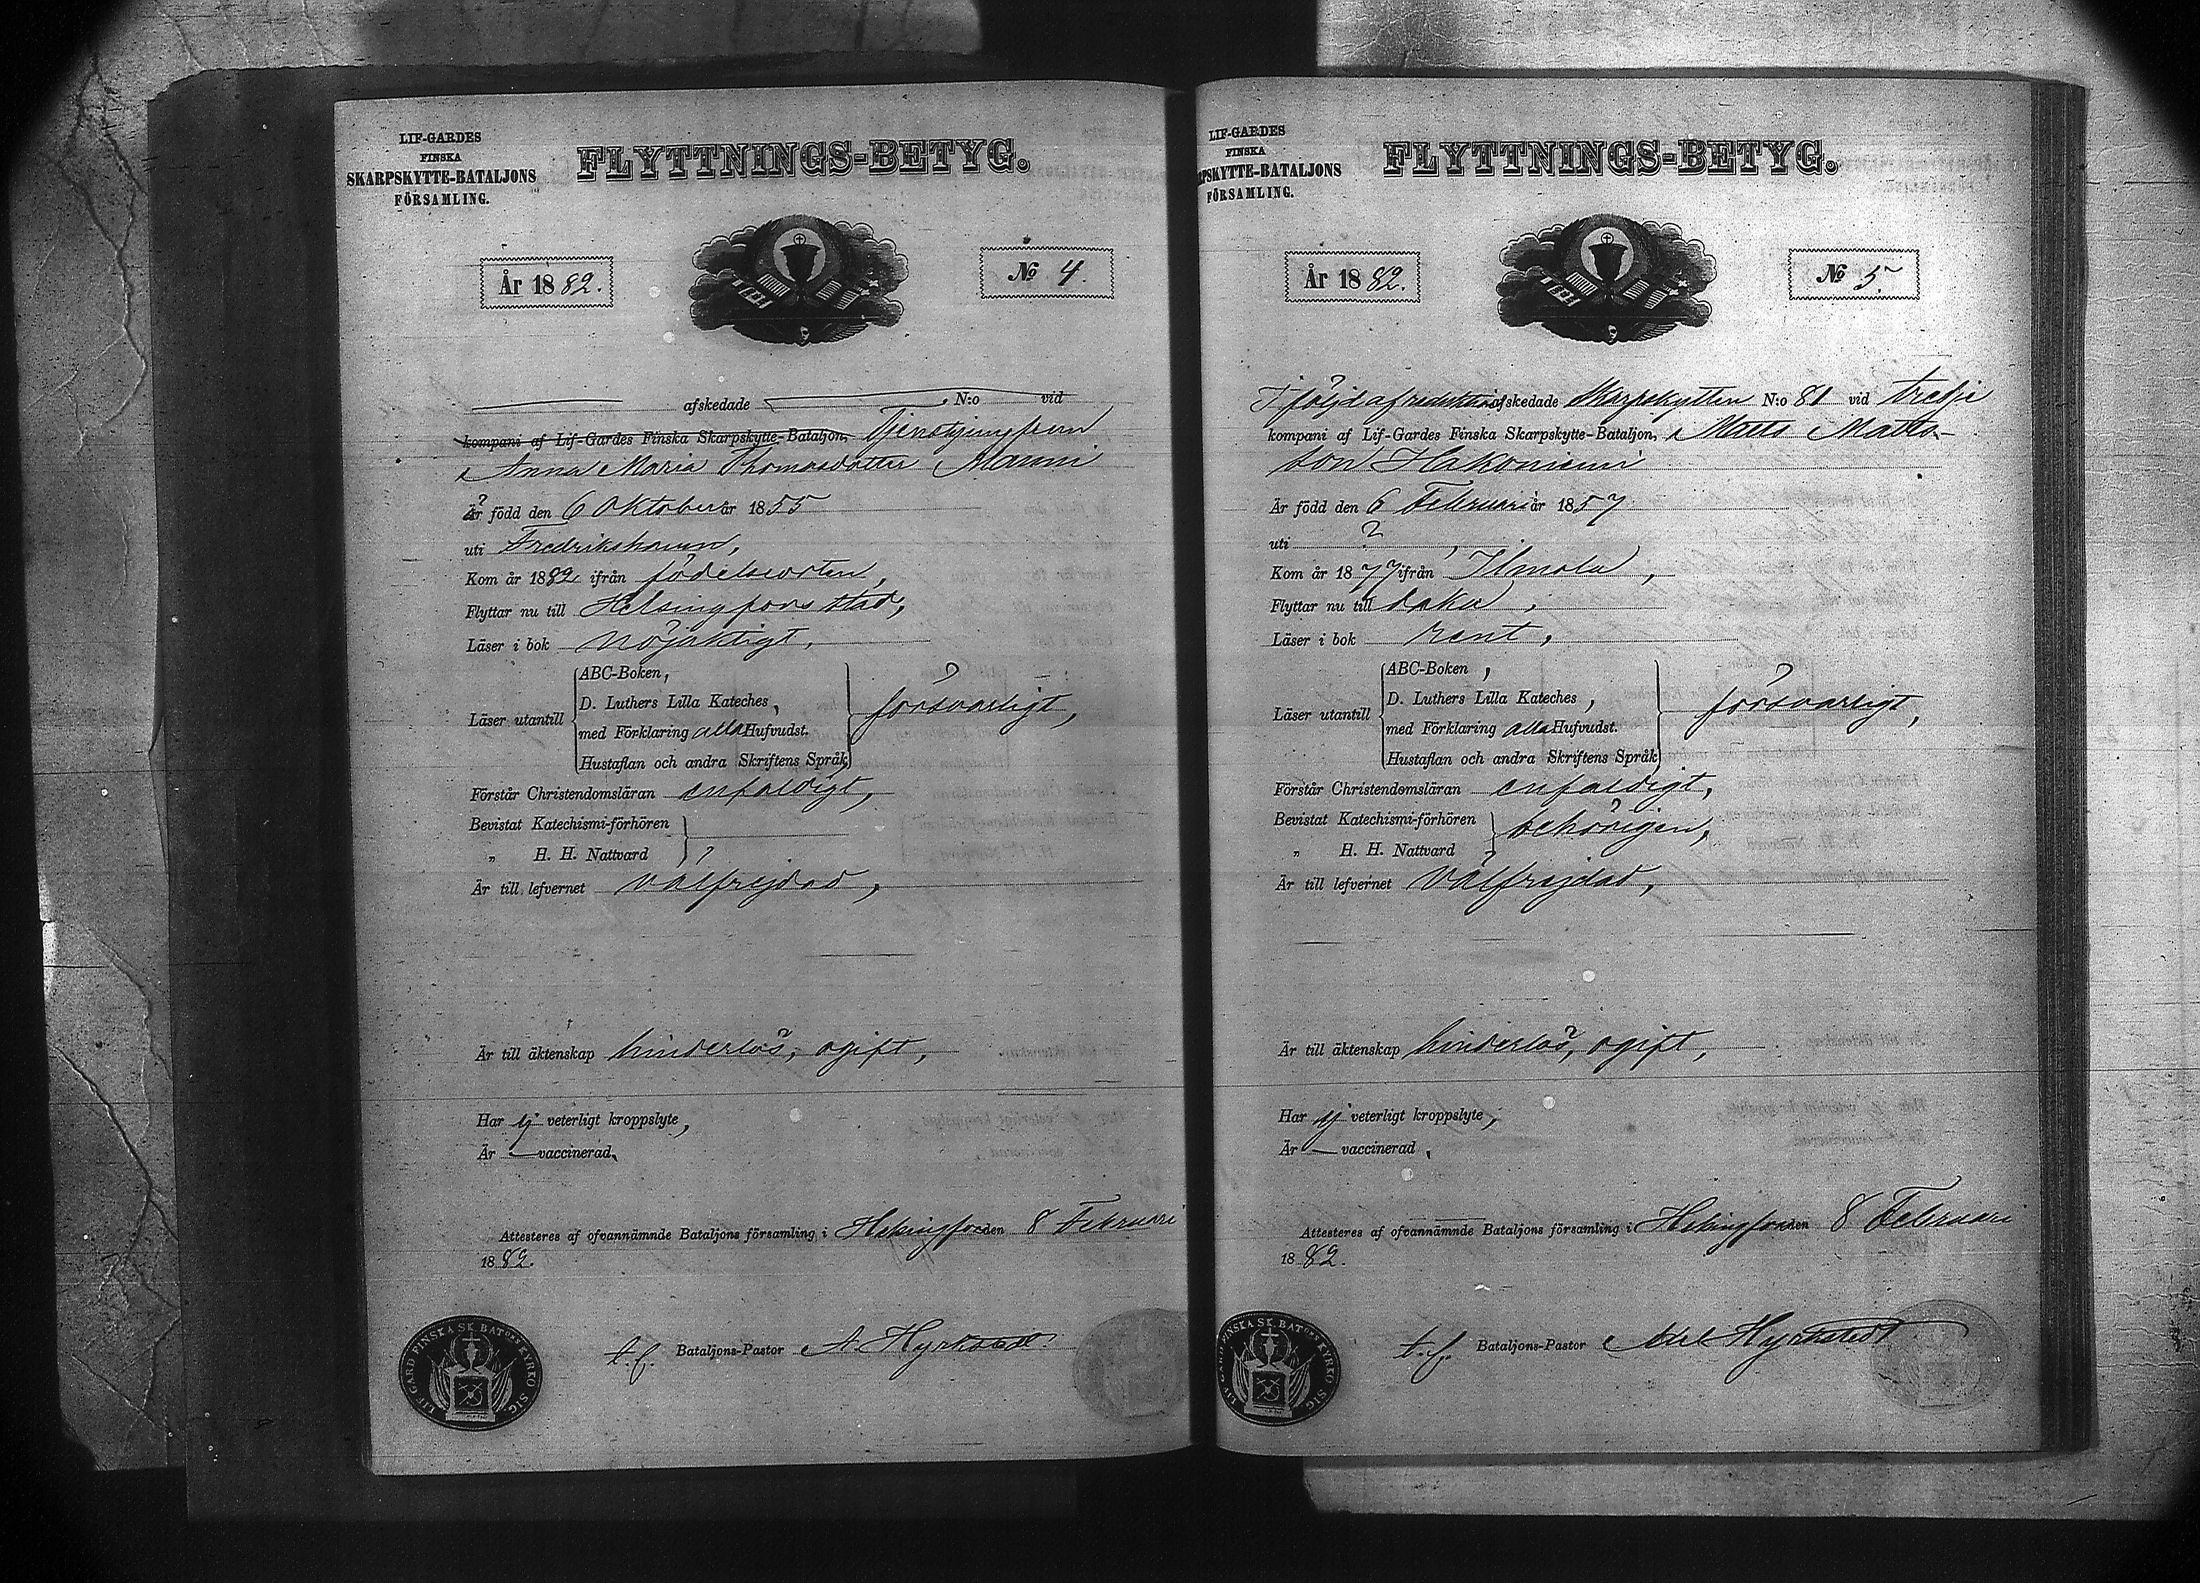 LIF-GARDES
FINSKA
SKARPSKYTTE-BATALJONS
FÖRSAMLING.
FLYTTNINGS-BETYG.
År 1882.
No 4.
afskedade N:o vid
kompani af Lif-Gardes Finska Skarpskytte-Bataljon, Tjenstejungfrun
Anna Maria Thomasdotter Manni
Är född den 6 Oktober år 1855
uti Fredrikshamn,
Kom år 1882 ifrån födelseorten,
Flyttar nu till Helsingfors stad,
Läser i bok nöjaktigt,
ABC-Boken,
D. Luthers Lilla Kateches,
Läser utantill försvarligt,
med Förklaring alla Hufvudst.
Hustaflan och andra Skriftens Språk
Förstår Christendomsläran enfaldigt,
Bevistat Katechismi-förhören
„ H. H. Nattvard
Är till lefvernet välfrejdad,
Är till äktenskap hinderlös, ogift,
Har ej veterligt kroppslyte,
Är — vaccinerad,
Attesteres af ofvannämnde Bataljons församling i Helsingfors den 8 Februari
1882.
LIF GARD FINSKA SK. BATONS KYRKO SIG.
t.f. Bataljons-Pastor A Hyrkstedt.
LIF-GARDES
FINSKA
RPSKYTTE-BATALJONS
FÖRSAMLING.
FLYTTNINGS-BETYG.
År 1882.
No 5.
I följd af reduktion afskedade Skarpskytten N:o 81 vid tredje
kompani af Lif-Gardes Finska Skarpskytte-Bataljon, Matts Matts-
son Hakoniemi
Är född den 6 Februari år 1857
uti ? ,
Kom år 1877 ifrån Ilmola,
Flyttar nu till
Läser i bok rent,
ABC-Boken,
D. Luthers Lilla Kateches,
Läser utantill försvarligt,
med Förklaring alla Hufvudst.
Hustaflan och andra Skriftens Språk
Förstår Christendomsläran enfaldigt,
Bevistat Katechismi-förhören behörigen,
„ H. H. Nattvard
Är till lefvernet välfrejdad,
Är till äktenskap hinderlös, ogift,
Har ej veterligt kroppslyte,
Är — vaccinerad,
Attesteres af ofvannämnde Bataljons församling i Helsingfors den 8 Februari
1882.
LIF GARD FINSKA SK. BATONS KYRKO SIG.
t.f. Bataljons-Pastor Axel Hyrkstedt